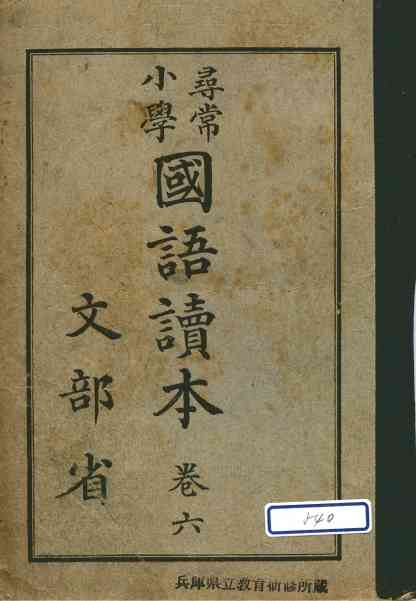 尋常
小學
國語讀本 卷六
文部省
540
兵庫県立教育研修所蔵